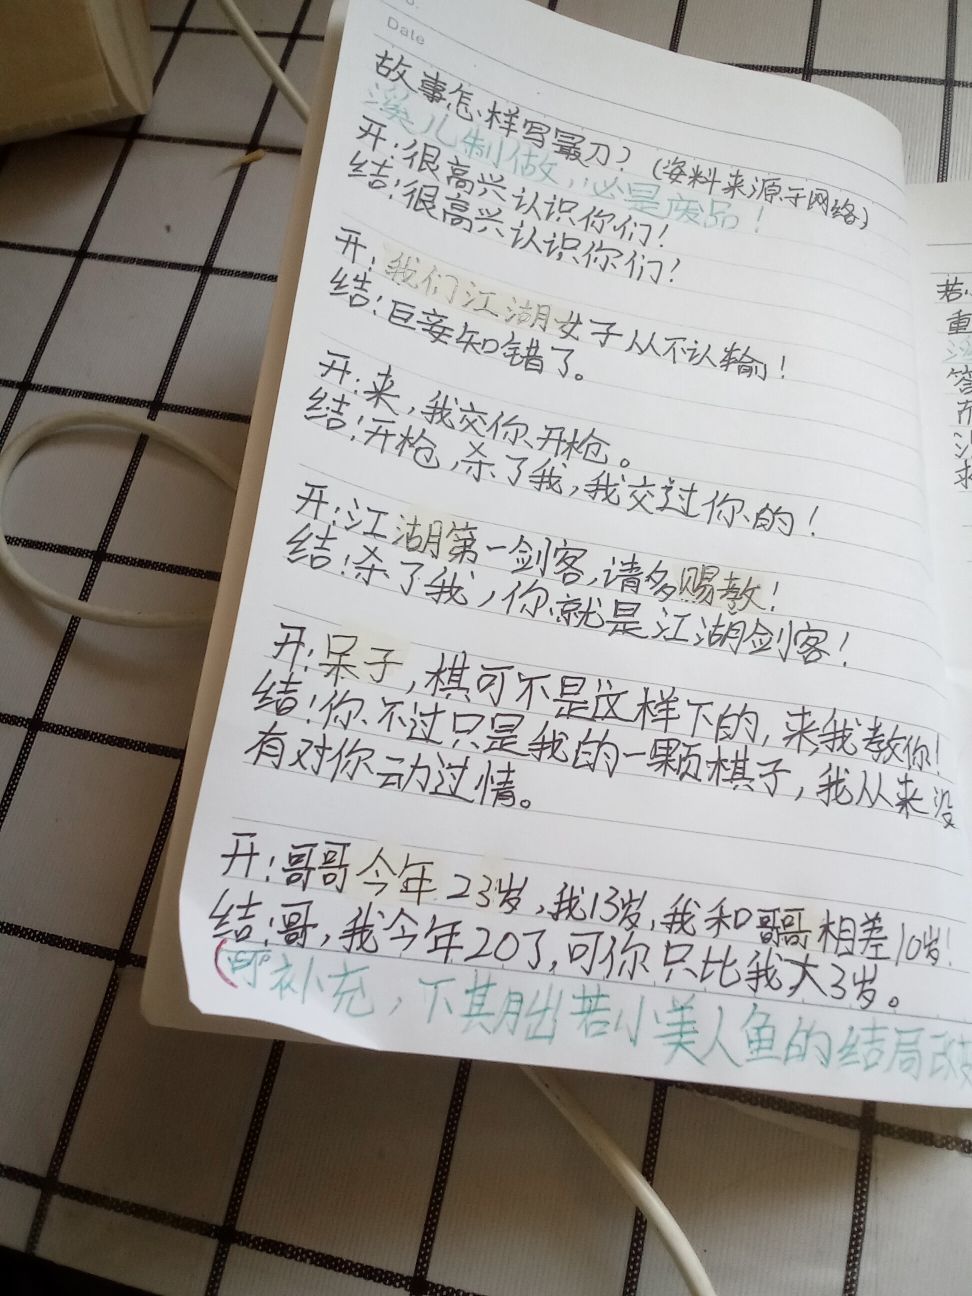 Date
故事怎样写最刀？(资料来源于网络)
溪儿制做，必是废品！
开：很高兴认识你们！
结：很高兴认识你们！
开：我们江湖女子从不认输！
结：臣妾知错了。
开：来，我交你开枪。
结：开枪，杀了我，我交过你的！
开：江湖第一剑客，请多赐教！
结：杀了我，你就是江湖剑客！
开：呆子，棋可不是这样下的，来我教你！
结：你不过只是我的一颗棋子，我从来没
有对你动过情。
开：哥哥今年23岁，我13岁，我和哥哥相差10岁！
结：哥，我今年20了，可你只比我大3岁。
(可补充，下其月出若小美人鱼的结局改
若小
重
答
而